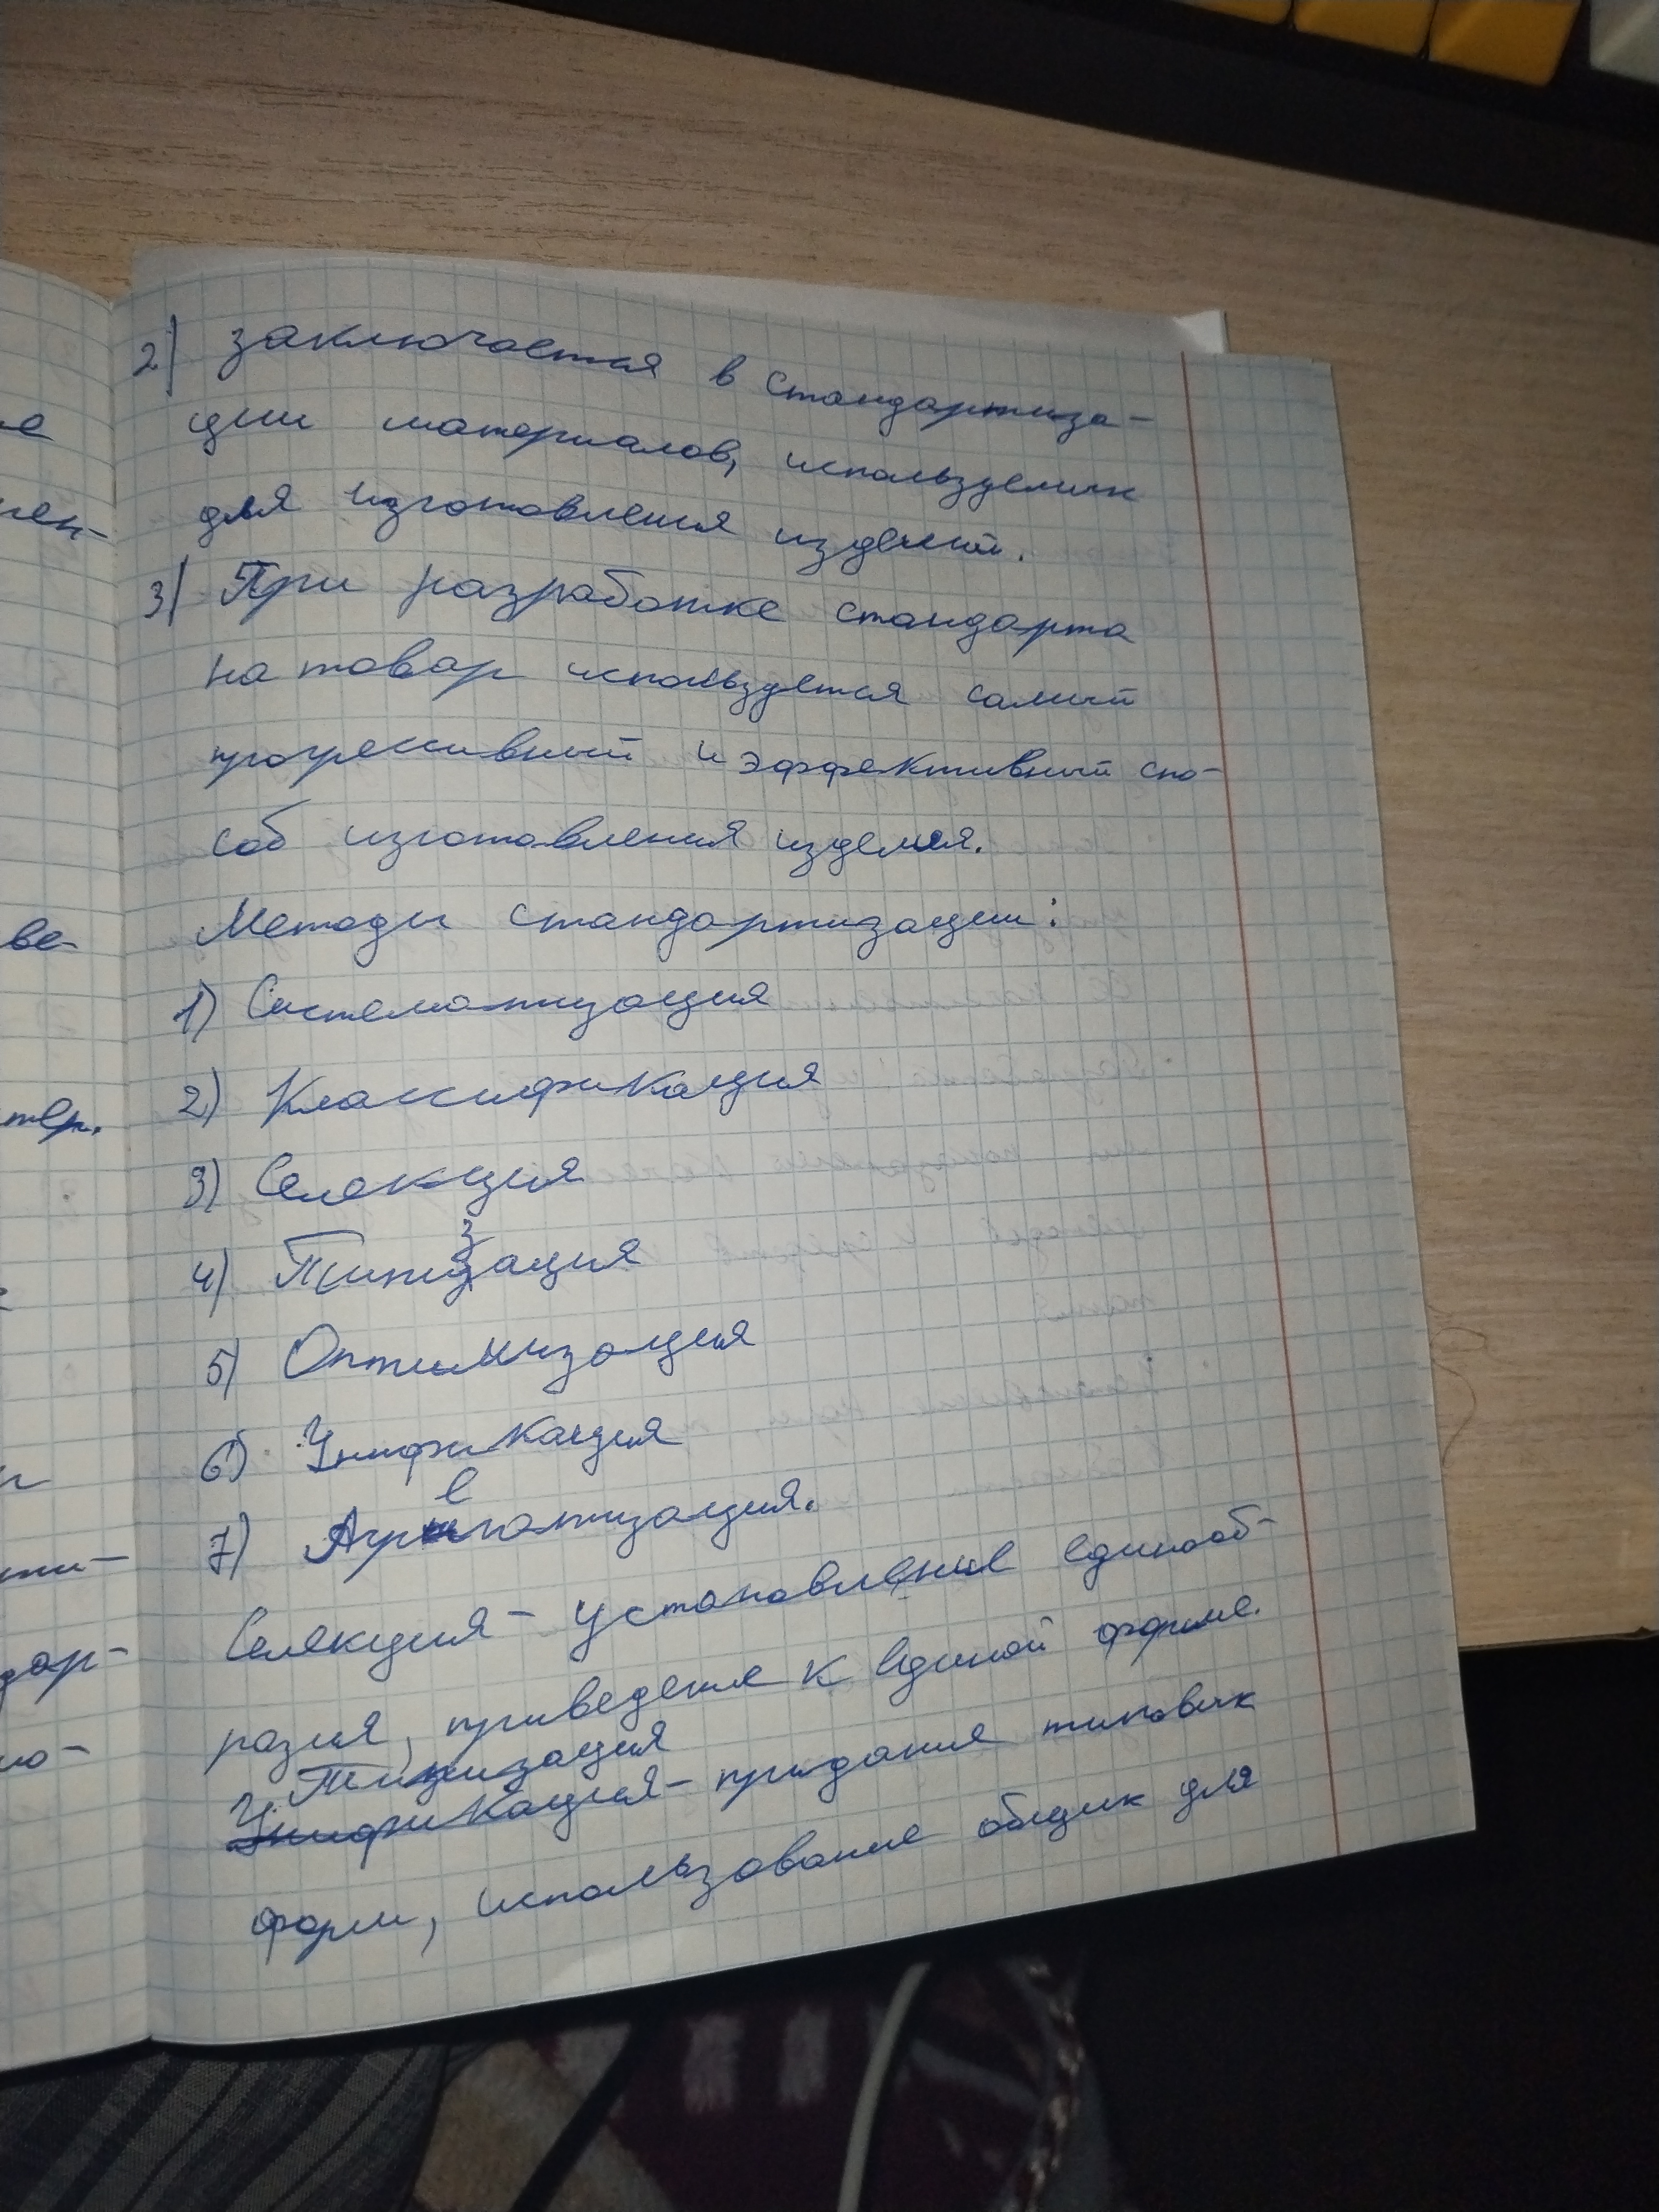 2) заключается в стандартиза-
ции материалов, используемых
для изготовления изделий.
3) При разработке стандарта
на товар используется самый
прогрессивный и эффективный спо-
соб изготовления изделия.
Методы стандартизации:
1) Систематизация
2) Классификация
3) Селекция
4) Типизация
5) Оптимизация
6) Унификация
7) Агрегатизация.
Селекция - установление единооб-
разия, приведение к единой форме.
Типизация
Унификация - придания типовых
форм, использование общих для